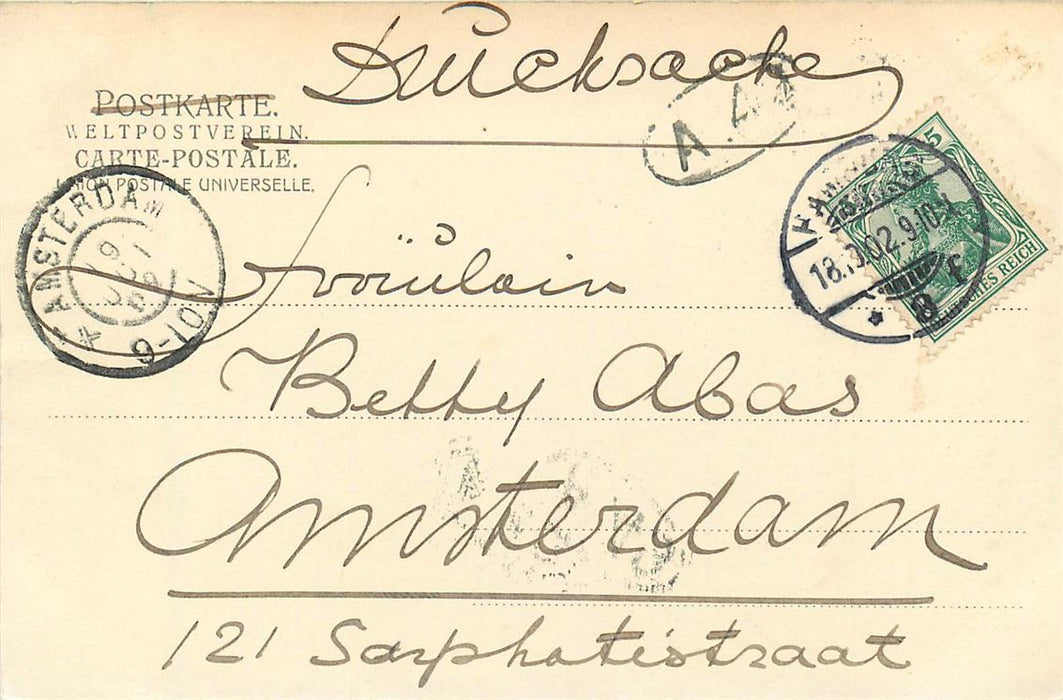 Drucksache
POSTKARTE.
WELTPOSTVEREIN.
CARTE-POSTALE.
UNION POSTALE UNIVERSELLE.
A. 42
5
DEUTSCHES REICH
HAMBURG
18.3.02.9-10V.
* 8 f
AMSTERDAM
9-10V
*
Fräulein
Betty Abas
Amsterdam
121 Sarphatistraat